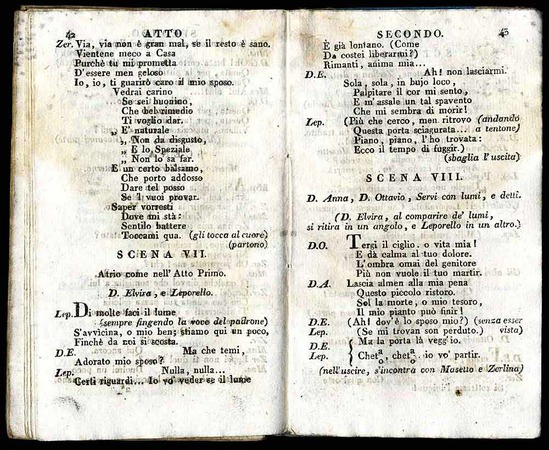 42 ATTO
Zer. Via, via non è gran mal, se il resto è sano.
Vientene meco a Casa
Purchè tu mi prometta
D'essere men geloso
Io, io, ti guarirò caro il mio sposo.
Vedrai carino
Se sei buonino,
Che bel rimedio
Ti voglio dar.
„ E' naturale
„ Non da disgusto,
„ E lo Speziale
„ Non lo sa far.
E un certo balsamo,
Che porto addosso
Dare tel posso
Se 'l vuoi provar.
Saper vorresti
Dove mi stà:
Sentilo battere
Toccami qua. (gli tocca al cuore)
(partono)
SCENA VII.
Atrio come nell' Atto Primo.
D. Elvira, e Leporello.
Lep. Di molte faci il lume
(sempre fingendo la voce del padrone)
S'avvicina, o mio ben; stiamo quì un poco,
Finchè da noi si scosta.
D.E. Ma che temi,
Adorato mio sposo?
Lep. Nulla, nulla...
Certi riguardi... Io vo' veder se il lume
SECONDO. 43
È già lontano. (Come
Da costei liberarmi?)
Rimanti, anima mia...
D.E. Ah! non lasciarmi.
Sola, sola, in bujo loco,
Palpitare il cor mi sento,
E m'assale un tal spavento
Che mi sembra di morir!
Lep. (Più che cerco, men ritrovo (andando
Questa porta sciagurata... a tentone)
Piano, piano, l'ho trovata:
Ecco il tempo di fuggir.)
(sbaglia l'uscita)
SCENA VIII.
D. Anna, D. Ottavio, Servi con lumi, e detti.
(D. Elvira, al comparire de' lumi,
si ritira in un angolo, e Leporello in un altro.)
D.O. Tergi il ciglio. o vita mia!
E dà calma al tuo dolore.
L'ombra omai del genitore
Più non vuole il tuo martir.
D.A. Lascia almen alla mia pena
Questo piccolo ristoro.
Sol la morte, o mio tesoro,
Il mio pianto può finir!
D.E. (Ah! dov'è lo sposo mio?) (senza esser
Lep. (Se mi trovan son perduto.) vista)
D.E. { Ma la porta là vegg'io.
Lep. { Cheta/o cheta/o io vo' partir.
(nell'uscire, s'incontra con Masetto e Zerlina)